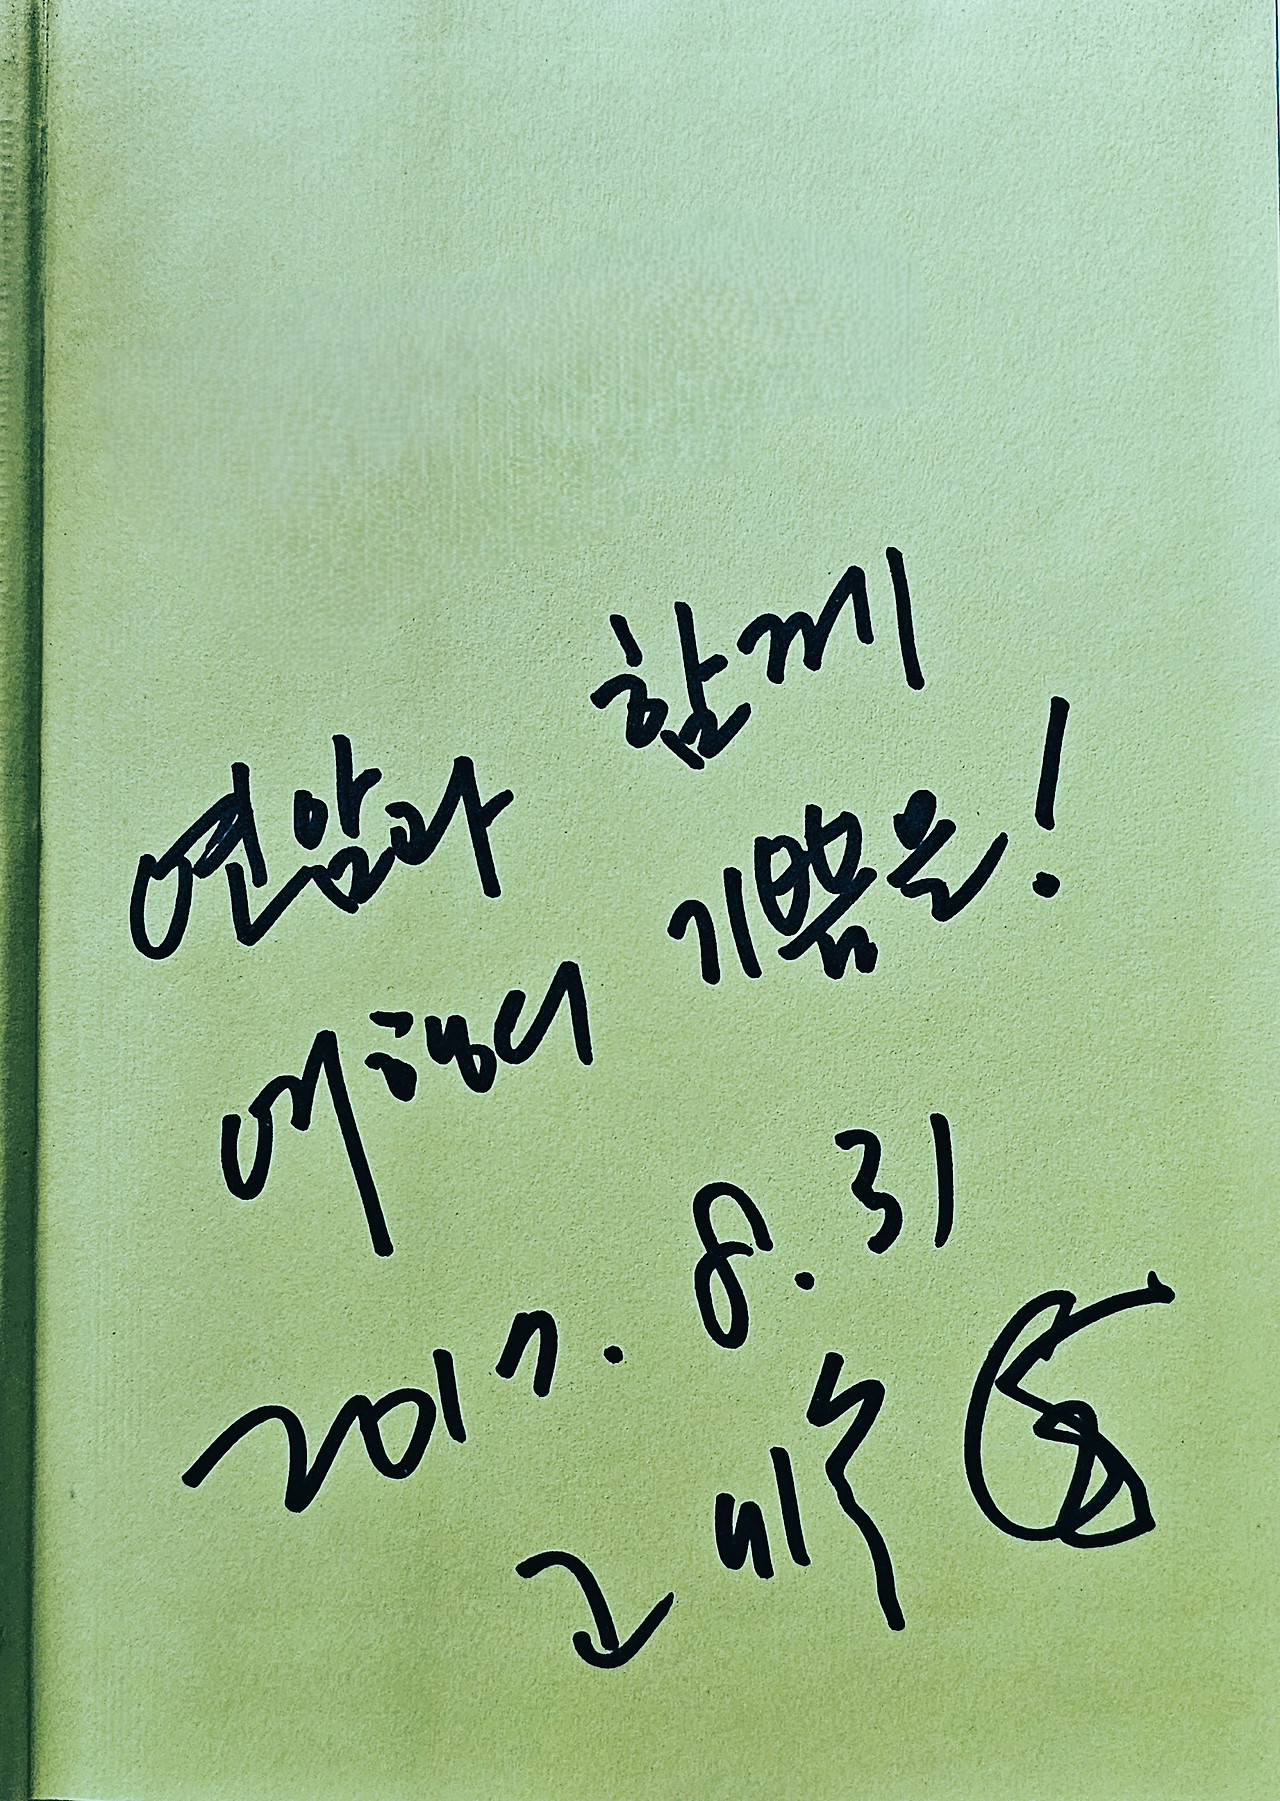 연암과 함께
여행의 기쁨을!
2017. 8. 31
고미숙